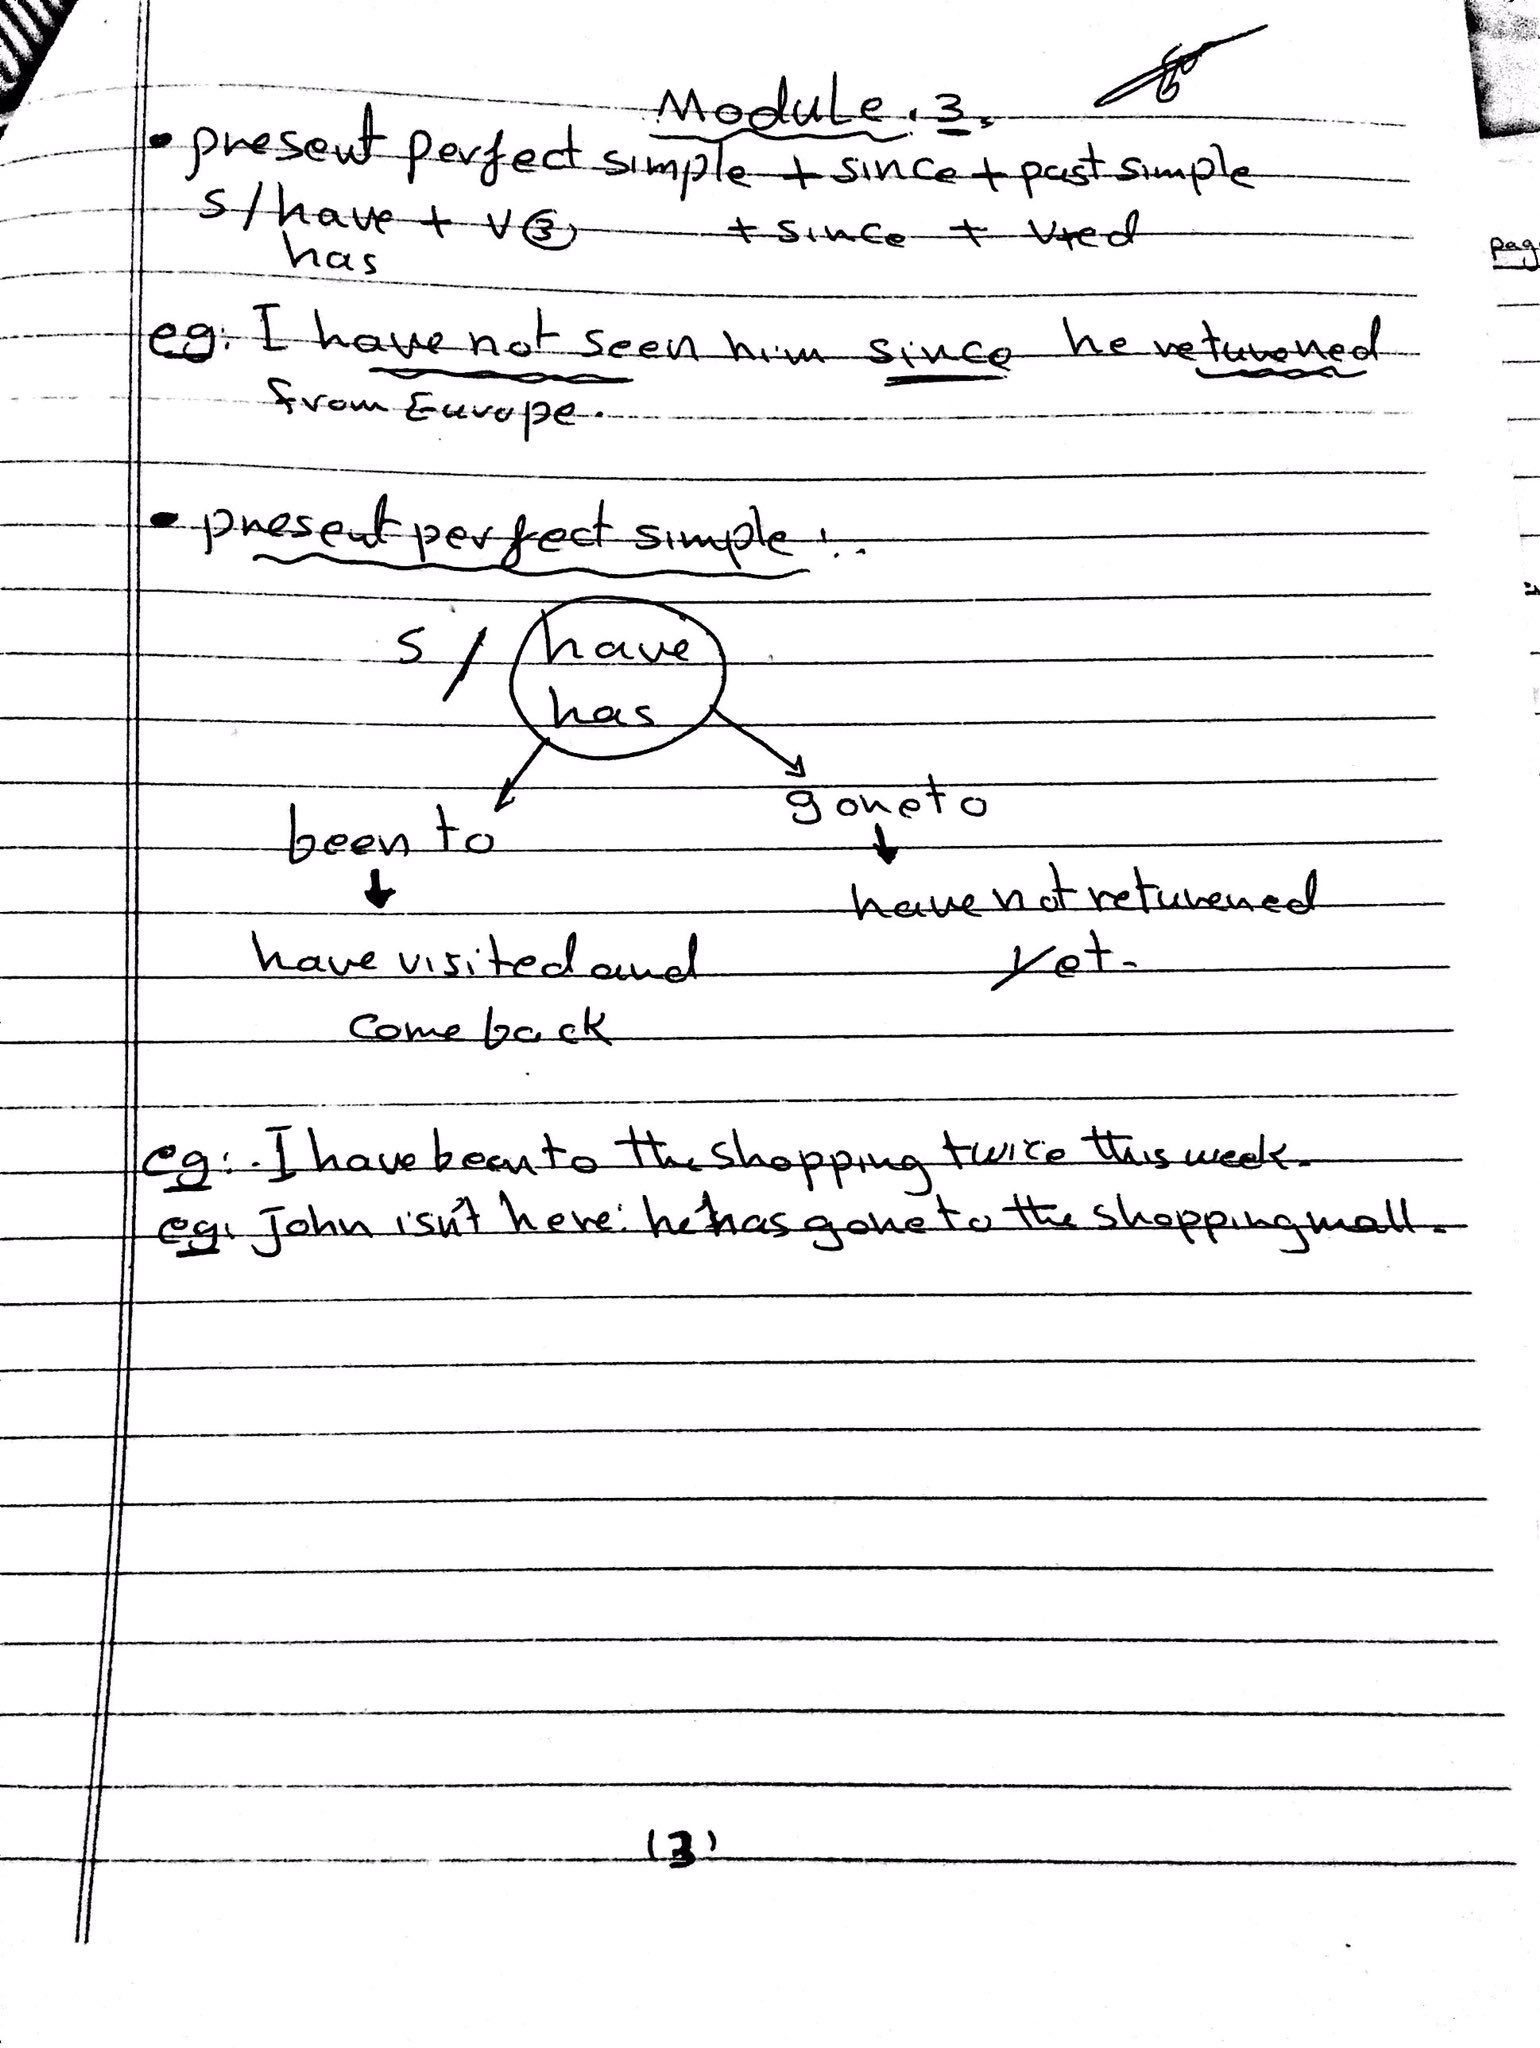 Module. 3.
• present perfect simple + since + past simple
S / have + V③ + since + V+ed
has
eg: I have not seen him since he returened
from Europe.
• present perfect simple :.
S / have
has
been to
gone to
have visited and
come back
have not returened
yet.
eg: I have been to the shopping twice this week.
eg: John isn't here: he has gone to the shopping mall.
(3)
pag